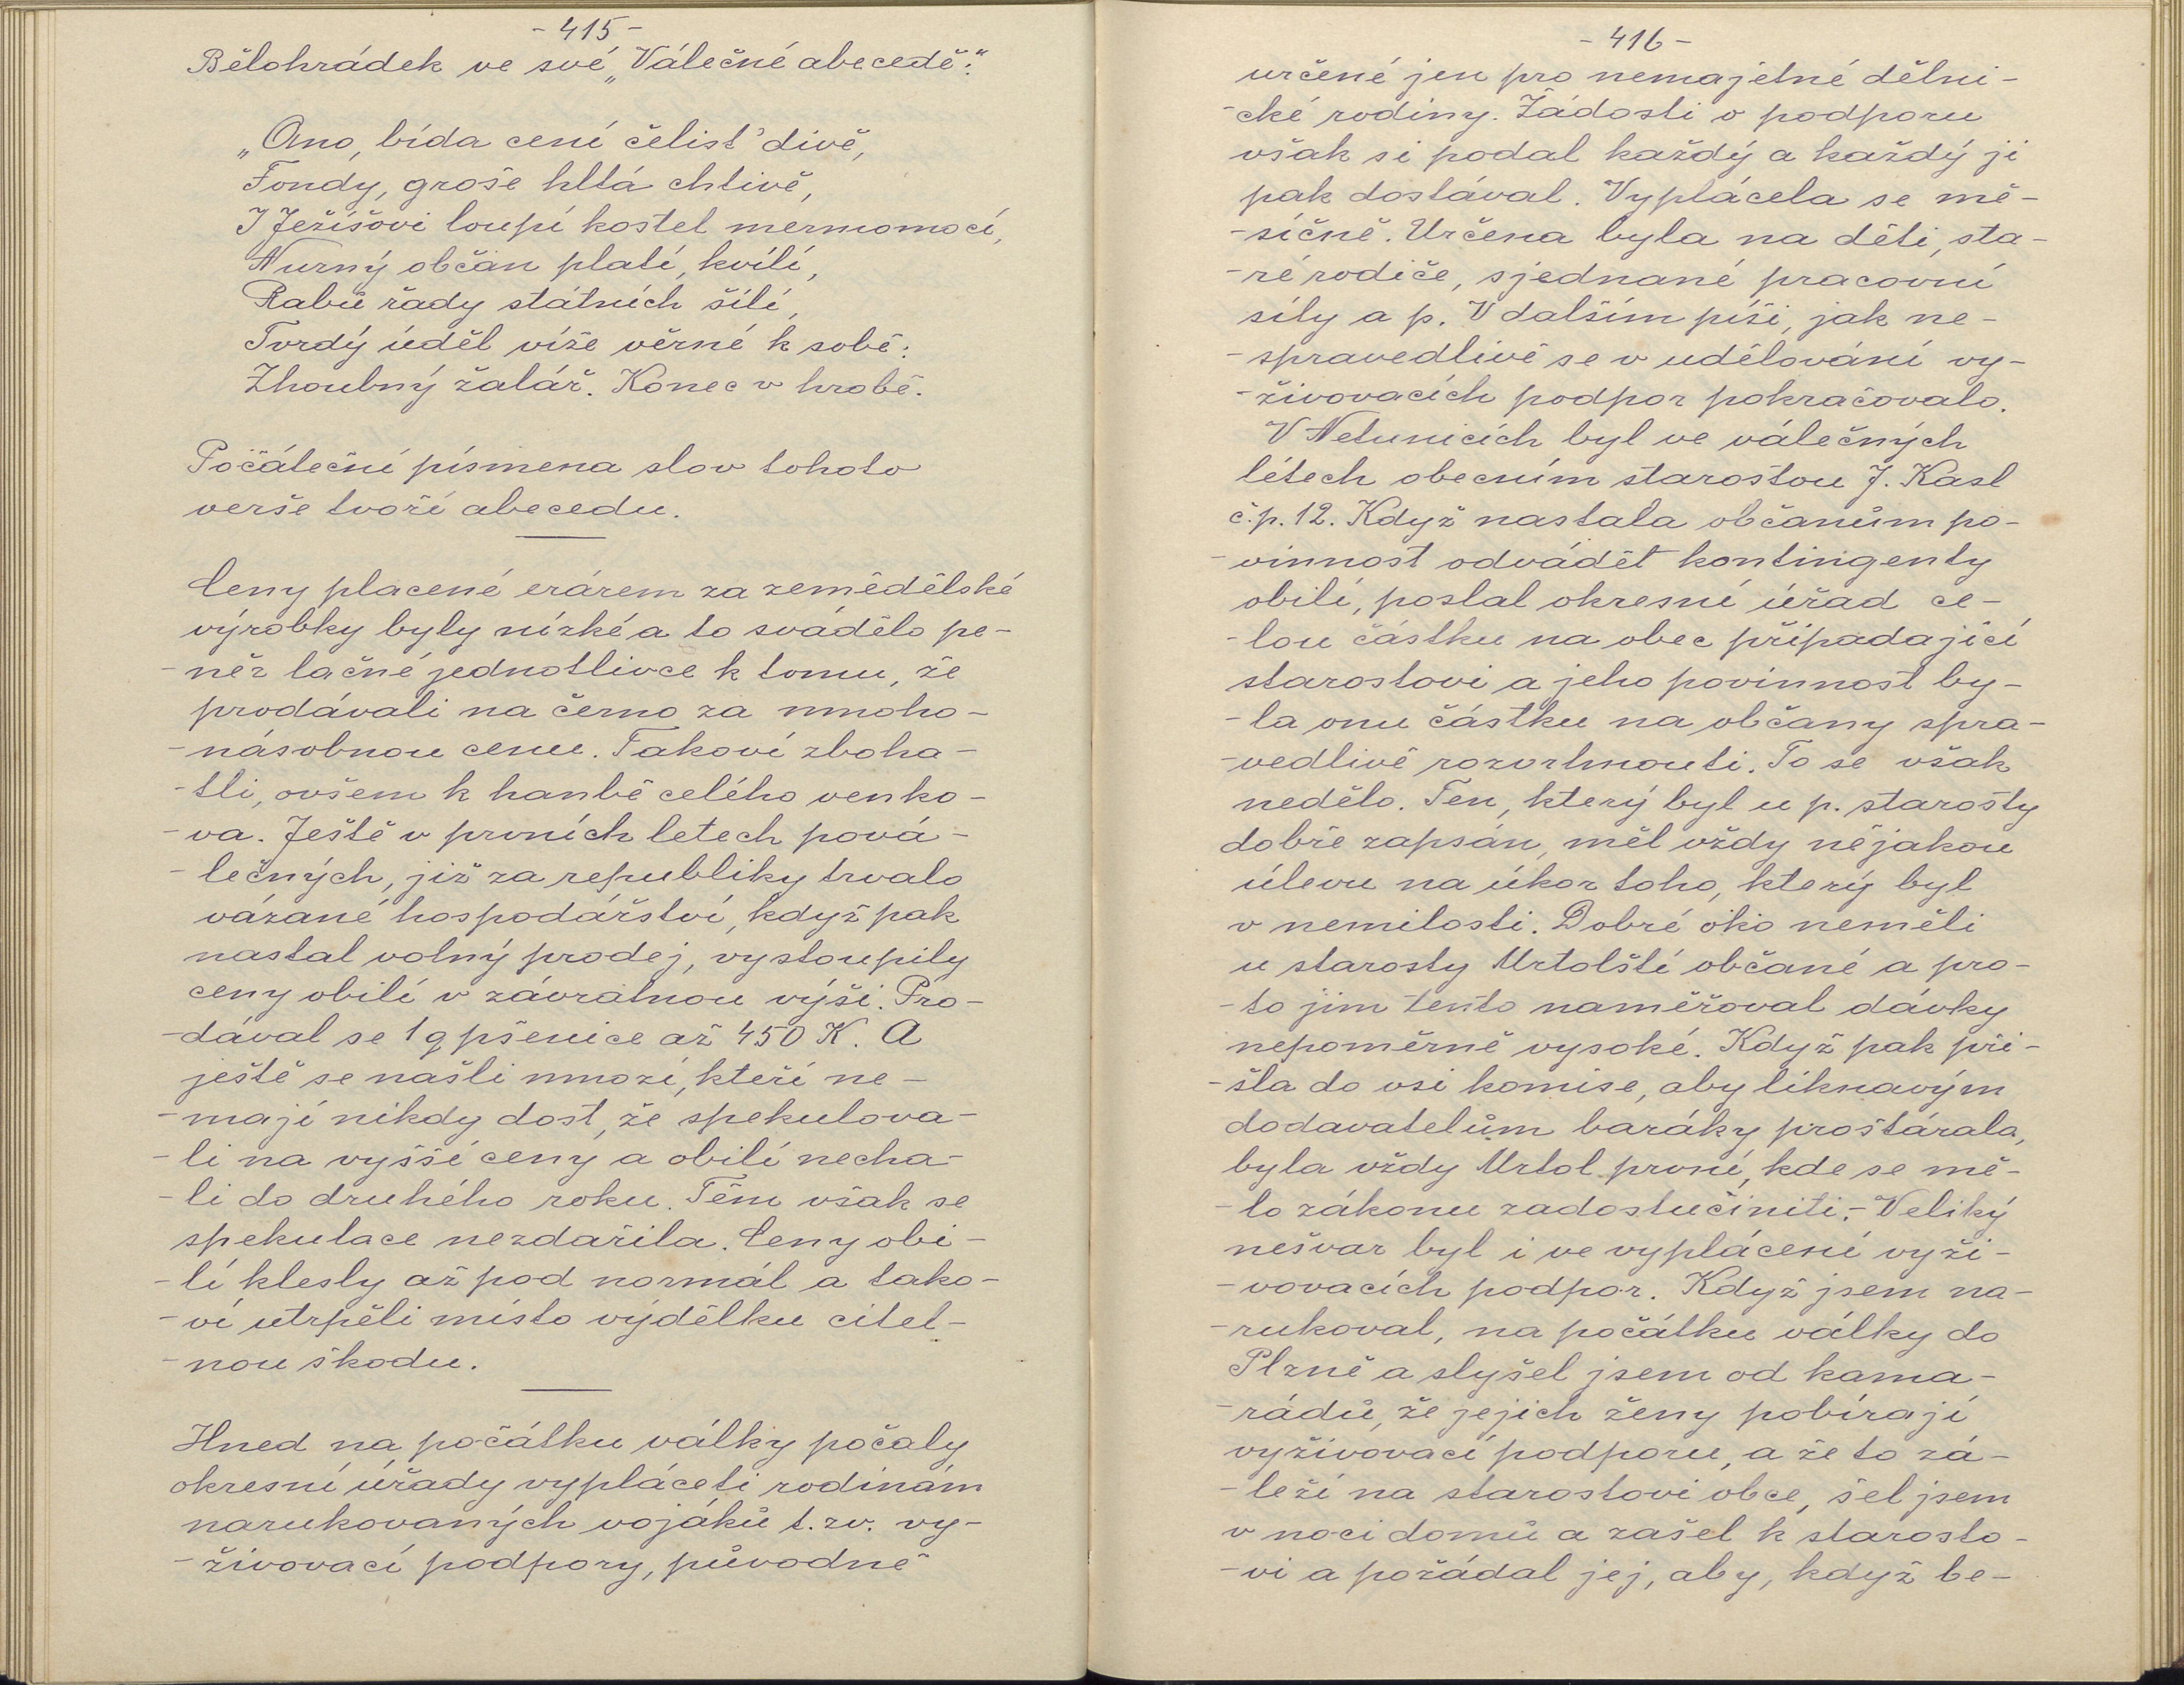 - 415 -
Bělohrádek ve své „Válečné abecedě“:

„Ano, bída cení čelisť divě,
Fondy, groše hltá chtivě,
I Ježíšovi loupí kostel mermomocí,
Nurný občan platí, kvílí,
Rabů řady státních šílí,
Tvrdý úděl víže věrné k sobě:
Zhoubný žalář. Konec v hrobě.

Počáteční písmena slov tohoto
verše tvoří abecedu.

Ceny placené erárem za zemědělské
výrobky byly nízké a to svádělo pe-
-něz lačné jednotlivce k tomu, že
prodávali na černo za mnoho-
-násobnou cenu. Takoví zboha-
-tli, ovšem k hanbě celého venko-
-va. Ještě v prvních letech pová-
-lečných, již za republiky trvalo
vázané hospodářství, když pak
nastal volný prodej, vystoupily
ceny obilí v závratnou výši. Pro-
-dával se 1 q pšenice až 450 K. A
ještě se našli mnozí, kteří ne-
-mají nikdy dost, že spekulova-
-li na vyšší ceny a obilí necha-
-li do druhého roku. Těm však se
spekulace nezdařila. Ceny obi-
-lí klesly až pod normál a tako-
-ví utrpěli místo výdělku citel-
-nou škodu.

Hned na počátku války počaly
okresní úřady vypláceti rodinám
narukovaných vojáků t. zv. vy-
-živovací podpory, původně

- 416 -
určené jen pro nemajetné dělni-
-cké rodiny. Žádosti o podporu
však si podal každý a každý ji
pak dostával. Vyplácela se mě-
-síčně. Určena byla na děti, sta-
-ré rodiče, sjednané pracovní
síly a p. V dalším píši, jak ne-
-spravedlivě se v udělování vy-
-živovacích podpor pokračovalo.
V Netunicích byl ve válečných
létech obecním starostou J. Kasl
č.p. 12. Když nastala občanům po-
-vinnost odvádět kontingenty
obilí, poslal okresní úřad ce-
-lou částku na obec připadající
starostovi a jeho povinnost by-
-la onu částku na občany spra-
-vedlivě rozvrhnouti. To se však
nedělo. Ten, který byl u p. starosty
dobře zapsán, měl vždy nějakou
úlevu na úkor toho, který byl
v nemilosti. Dobré oko neměli
u starosty Mrtolští občané a pro-
-to jim tento naměřoval dávky
nepoměrně vysoké. Když pak při-
-šla do vsi komise, aby liknavým
dodavatelům baráky proštárala,
byla vždy Mrtol první, kde se mě-
-lo zákonu zadostučiniti. - Veliký
nešvar byl i ve vyplácení vyži-
-vovacích podpor. Když jsem na-
-rukoval, na počátku války do
Plzně a slyšel jsem od kama-
-rádů, že jejich ženy pobírají
vyživovací podporu, a že to zá-
-leží na starostovi obce, šel jsem
v noci domů a zašel k starosto-
-vi a požádal jej, aby, když be-